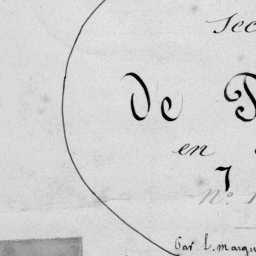 Sec
de
en
7
n.º
Par L. marqu